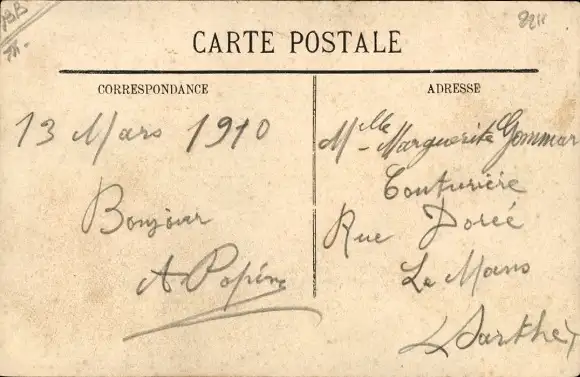 CARTE POSTALE
CORRESPONDANCE
13 Mars 1910
Bonjour
A Popéne
ADRESSE
Mlle Marguerite Gommar
Couturière
Rue Dorée
Le Mans
Sarthe